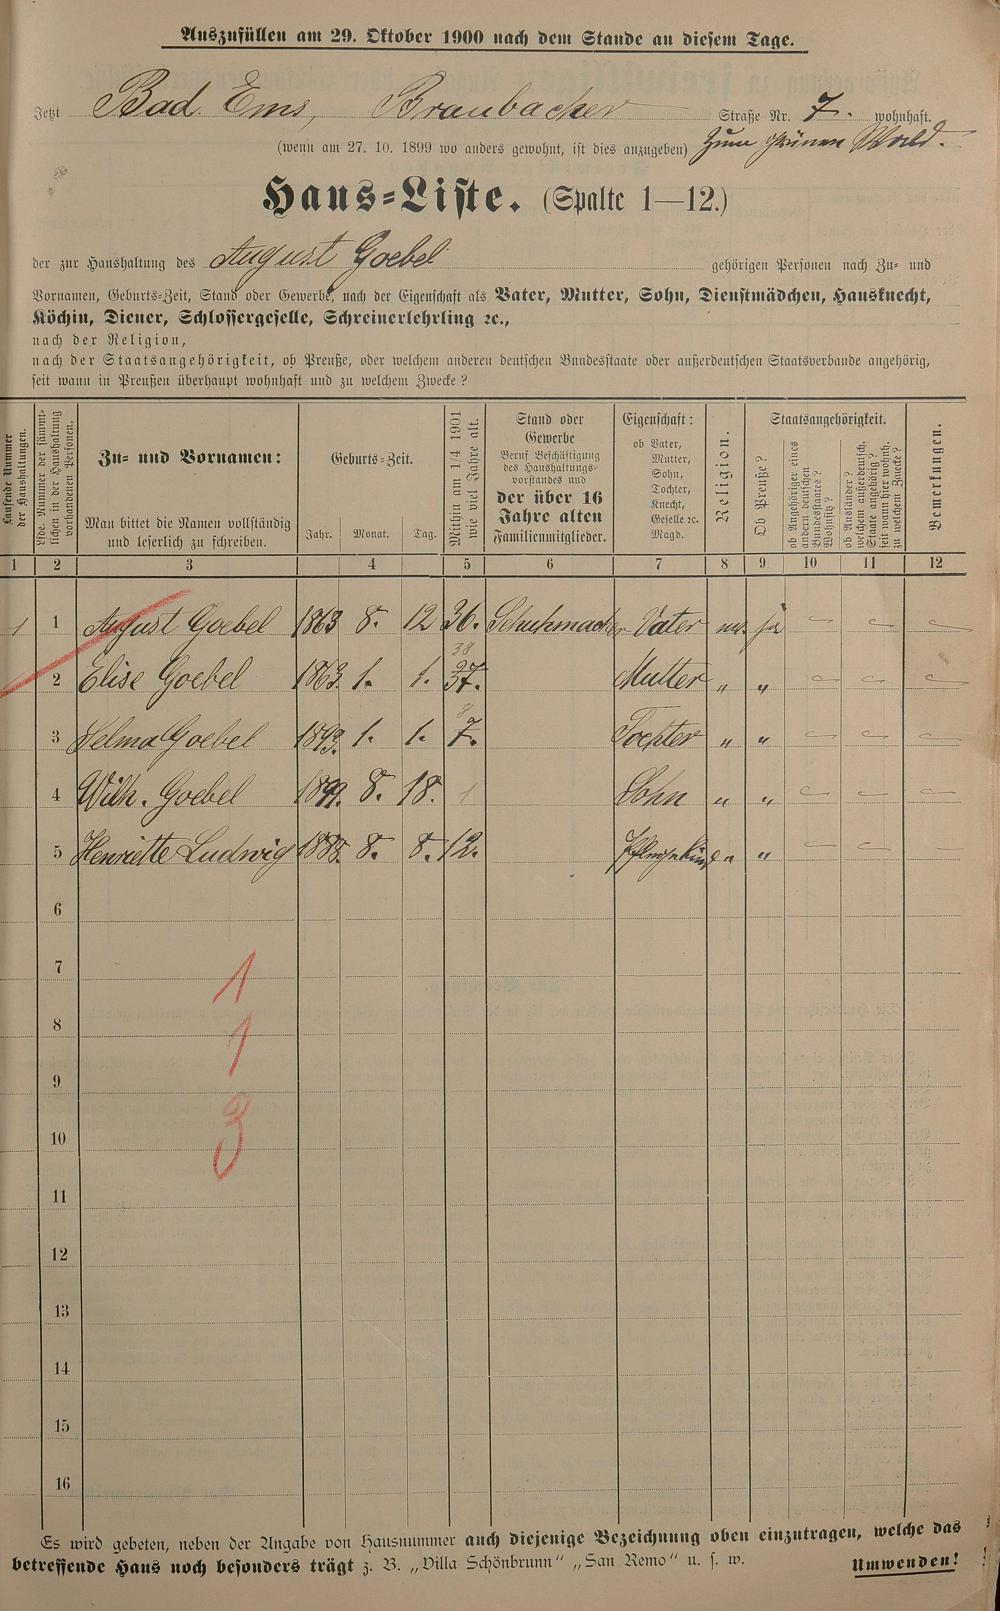 Auszufüllen am 29. Oktober 1900 nach dem Stande an diesem Tage.
Jetzt Bad Ems, Braubacher Straße Nr. 7. wohnhaft.
(wenn am 27. 10. 1899 wo anders gewohnt, ist dies anzugeben) Zum grünen Wald.
Haus-Liste. (Spalte 1—12.)
der zur Haushaltung des August Goebel gehörigen Personen nach Zu- und
Vornamen, Geburts-Zeit, Stand oder Gewerbe, nach der Eigenschaft als Vater, Mutter, Sohn, Dienstmädchen, Hausknecht,
Köchin, Diener, Schlossergeselle, Schreinerlehrling ꝛc.,
nach der Religion,
nach der Staatsangehörigkeit, ob Preuße, oder welchem anderen deutschen Bundesstaate oder außerdeutschen Staatsverbande angehörig,
seit wann in Preußen überhaupt wohnhaft und zu welchem Zwecke?
Laufende Nummer
der Haushaltungen.
Lfde. Nummer der sämmt-
lichen in der Haushaltung
vorhandenen Personen.
Zu- und Vornamen:
Man bittet die Namen vollständig
und leserlich zu schreiben.
Geburts-Zeit.
Jahr. Monat. Tag.
Mithin am 1/4 1901
wie viel Jahre alt.
Stand oder
Gewerbe
Beruf Beschäftigung
des Haushaltungs-
vorstandes und
der über 16
Jahre alten
Familienmitglieder.
Eigenschaft:
ob Vater,
Mutter,
Sohn,
Tochter,
Knecht,
Geselle ꝛc.
Magd.
Religion.
Staatsangehörigkeit.
Ob Preuße?
ob Angehöriger eines
andern deutschen
Bundesstaates?
Wohnsitz?
ob Ausländer?
welchem außerdeutsch.
Staate angehörig?
seit wann hier wohnh.
zu welchem Zwecke?
Bemerkungen.
1 2 3 4 5 6 7 8 9 10 11 12
1 1 August Goebel 1863 8. 12 36. Schuhmacher Vater ja — — —
38
2 Elise Goebel 1863. 1. 1. 37. Mutter „ „ — — —
8
3 Selma Goebel 1893. 1. 1. 7. Tochter „ „ — — —
4 Wilh. Goebel 1899. 8. 18. 1 Sohn „ „ — — —
5 Henriette Ludwig 1888. 8. 8. 12. Pflegekind „ „ — — —
6
7
1
8
1
9
10
3
11
12
13
14
15
16
Es wird gebeten, neben der Angabe von Hausnummer auch diejenige Bezeichnung oben einzutragen, welche das
betreffende Haus noch besonders trägt z. B. „Villa Schönbrunn“ „San Remo“ u. s. w. Umwenden!